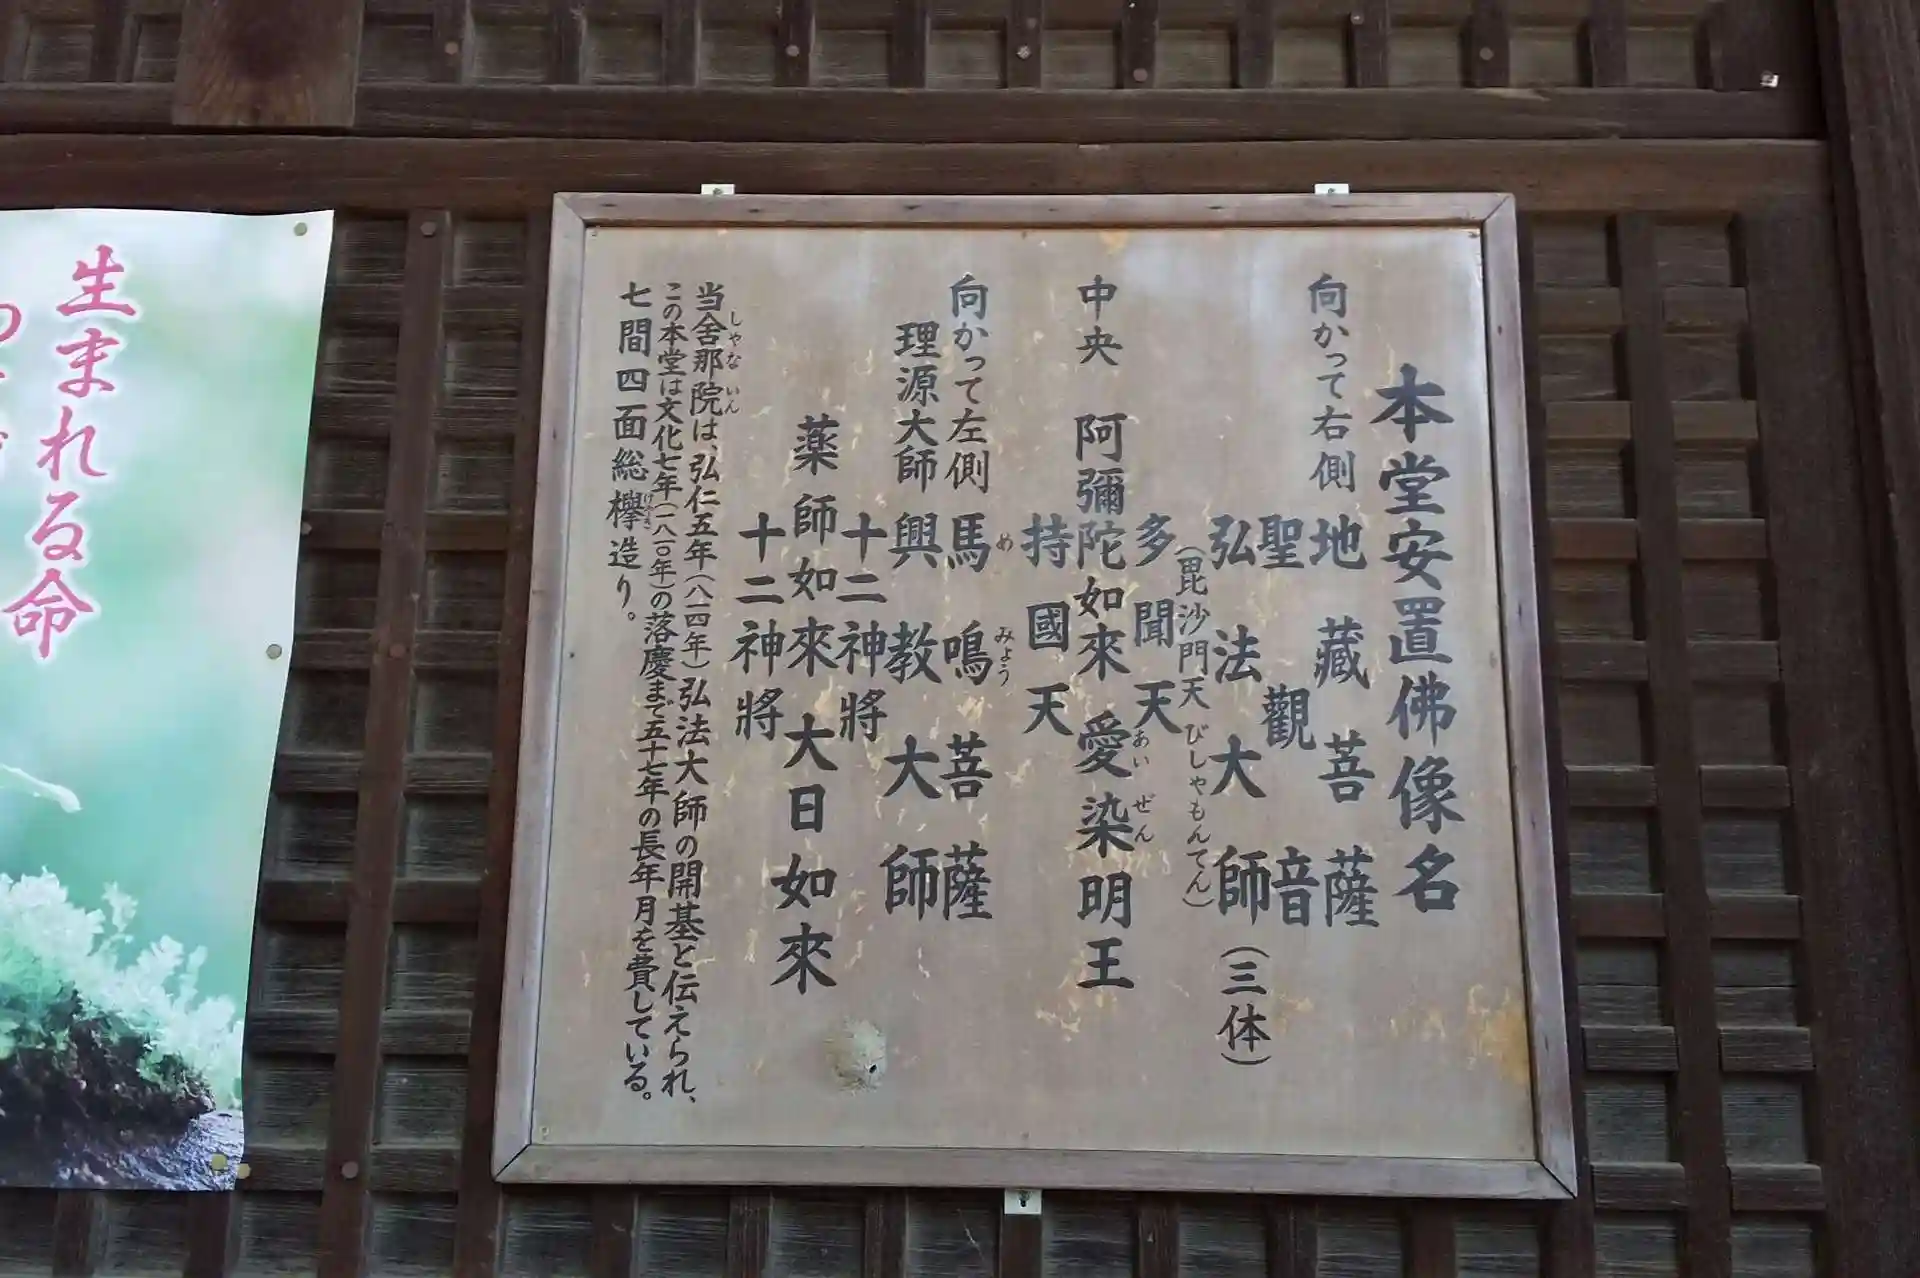 本堂安置佛像名
向かって右側 地藏菩薩
聖觀音
弘法大師(三体)
(毘沙門天 びしゃもんてん)
多聞天
中央 阿彌陀如來 愛染明王
あい ぜん
持國天
向かって左側 馬鳴菩薩
め みょう
理源大師 興教大師
十二神將
薬師如來 大日如來
十二神將
当舍那院は、弘仁五年(八一四年)弘法大師の開基と伝えられ、
しゃな いん
この本堂は文化七年(一八一〇年)の落慶まで五十七年の長年月を費している。
七間四面総欅造り。
けやき
生まれる命